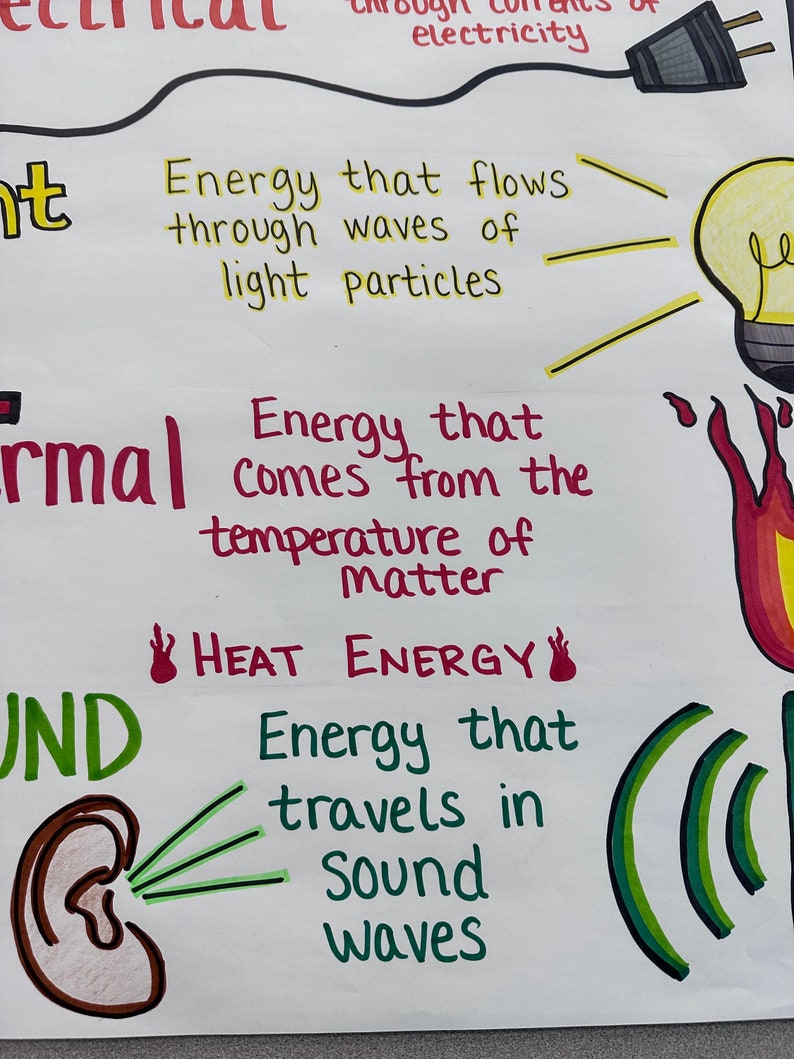 ectrical
through currents of
electricity
ht
Energy that flows
through waves of
light particles
ermal
Energy that
comes from the
temperature of
matter
HEAT ENERGY
UND
Energy that
travels in
sound
waves